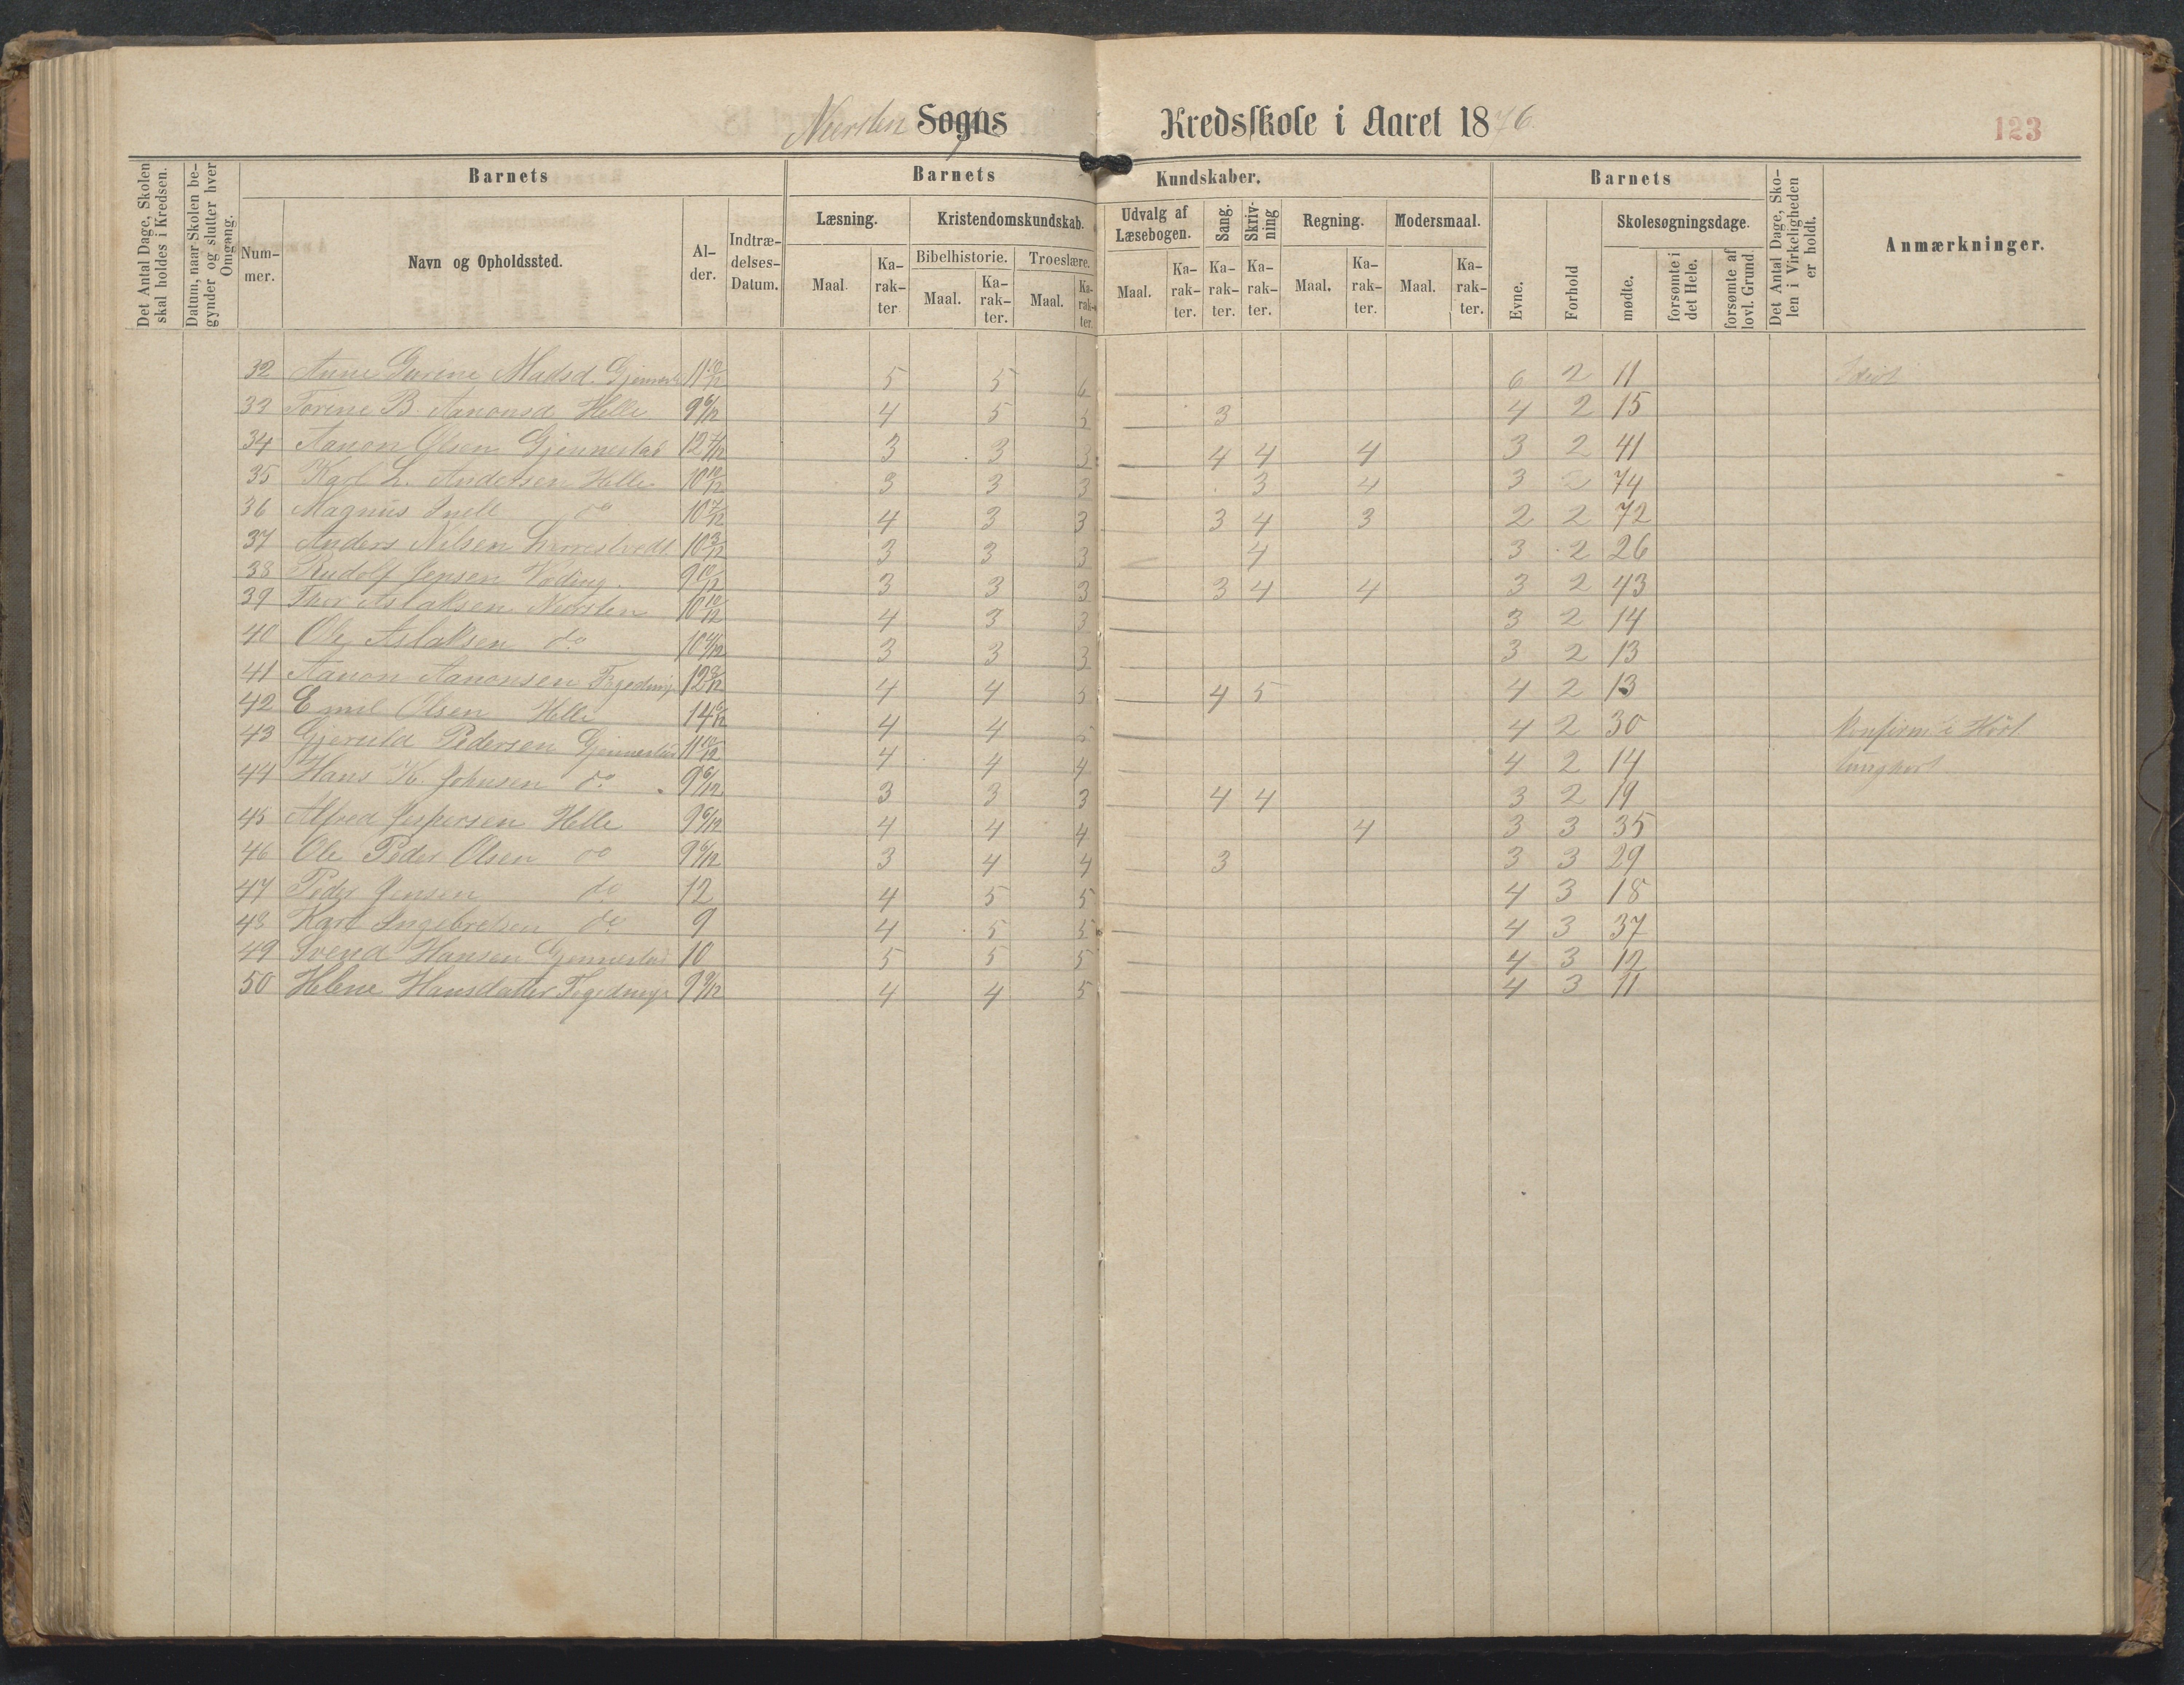 Nersten Sogns Kredsskole i Aaret 1876.
123
Det Antal Dage, Skolen skal holdes i Kredsen.
Datum, naar Skolen begynder og slutter hver Omgang.
Barnets
Barnets
Kundskaber.
Barnets
Det Antal Dage, Skolen i Virkeligheden er holdt.
Anmærkninger.
Nummer.
Navn og Opholdssted.
Alder.
Indtrædelses-Datum.
Læsning.
Kristendomskundskab.
Udvalg af Læsebogen.
Sang.
Skrivning
Regning.
Modersmaal.
Evne.
Forhold
Skolesøgningsdage.
Bibelhistorie.
Troeslære.
mødte.
forsømte i det Hele.
forsømte af lovl. Grund
Maal. Karakter Maal. Karakter. Maal. Karakter. Maal. Karakter. Karakter. Karakter. Maal. Karakter. Maal. Karakter.
32 Anne Gurine Madsd. 11 10/12 5 5 6 6 2 11 Idiot
33 Torine B. Aanonsd Helle 9 6/12 4 5 5 3 4 2 15
34 Aanon Olsen Gjennestad 12 7/12 3 3 3 4 4 4 3 2 41
35 Karl L. Andersen Helle 10 10/12 3 3 3 3 4 3 2 74
36 Magnus Snell do 10 7/12 4 3 3 3 4 3 2 2 72
37 Anders Nilsen 10 3/12 3 3 3 4 3 2 26
38 Rudolf Jensen Voding. 9 10/12 3 3 3 3 4 4 3 2 43
39 Thor Aslaksen Nersten 10 10/12 4 3 3 3 2 14
40 Ole Aslaksen do 10 4/12 3 3 3 3 2 13
41 Aanon Aanonsen 12 8/12 4 4 5 4 5 4 2 13
42 Emil Olsen Helle 14 6/12 4 4 5 4 2 30 Konfirm i Höst
43 Gjeruld Pedersen Gjennestad 11 10/12 4 4 4 4 2 14 tunghørt
44 Hans K. Johnsen do. 9 6/12 3 3 3 4 4 3 2 19
45 Alfred Jespersen Helle 9 6/12 4 4 4 4 3 3 35
46 Ole Peder Olsen do 9 6/12 3 4 4 3 3 3 29
47 Peder Jensen do 12 4 5 5 4 3 18
48 Karl Ingebretsen do 9 4 5 5 4 3 37
49 Svend Hansen Gjennestad 10 5 5 5 4 3 12
50 Helene Hansdatter 9 9/12 4 4 5 4 3 11